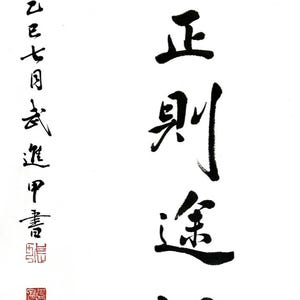 正則途
乙巳七月武進甲書